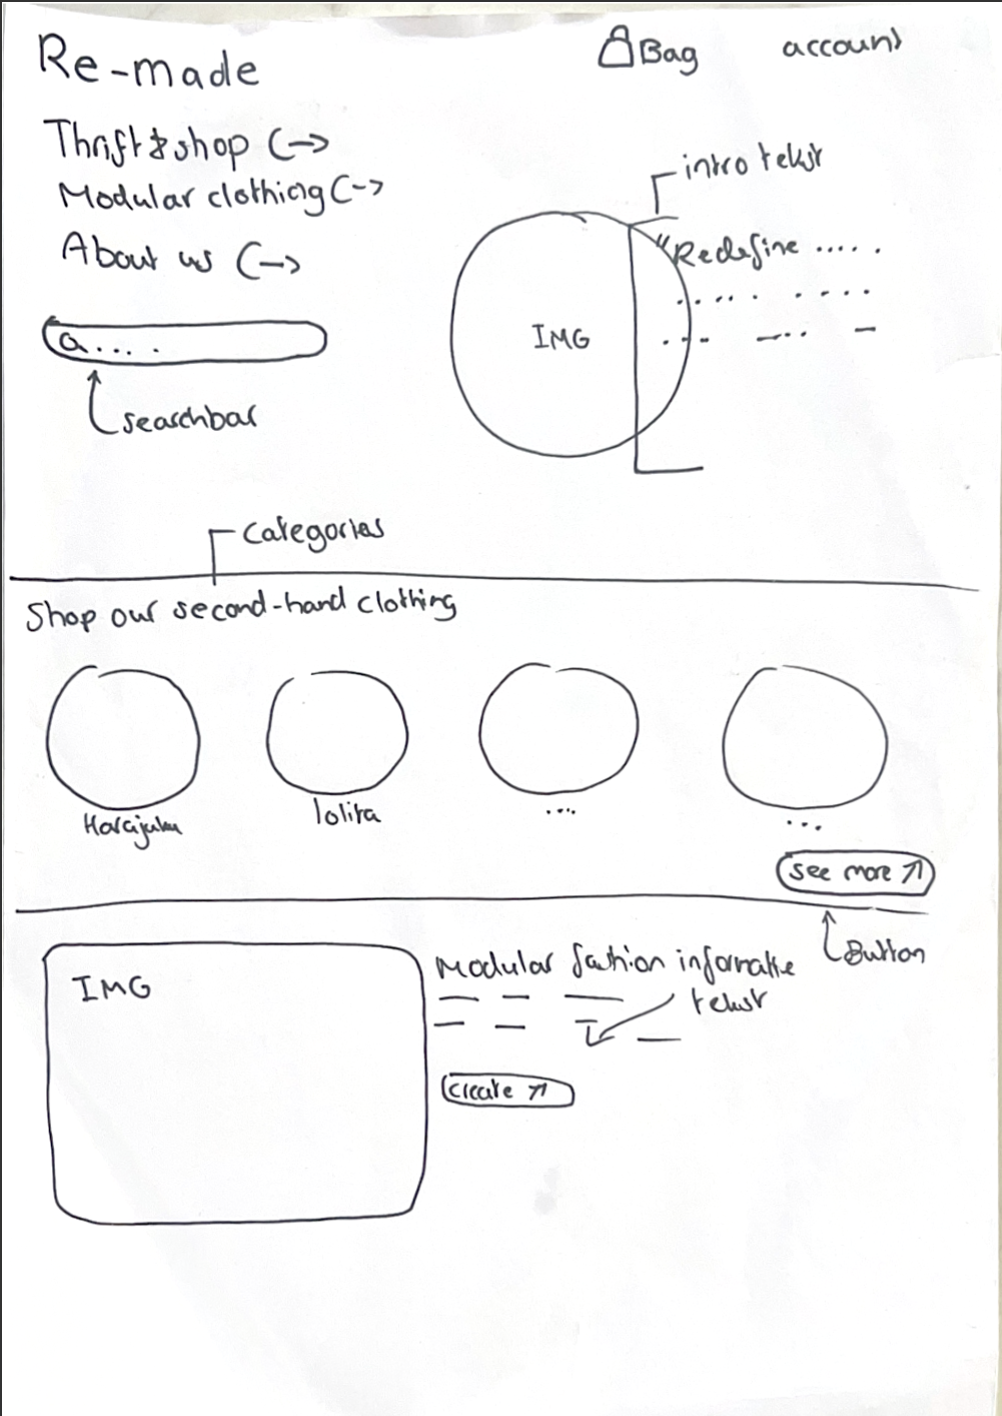 Re-made
Bag
account
Thrift & shop (->
Modular clothing (->
About us (->
intro tekst
"Redefine .....
IMG
Q....
searchbar
Categories
Shop our second-hand clothing
Harajuku
lolita
...
...
see more ↗
Button
IMG
Modular fashion informatie
tekst
create ↗